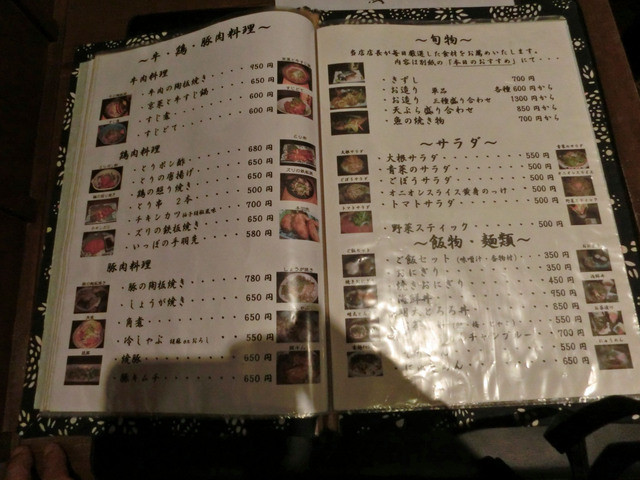 ～牛・鶏・豚肉料理～
牛肉料理
・牛肉の陶板焼き 950円
・京菜と牛すじ鍋 650円
・すじ煮 600円
・すじどて 600円
鶏肉料理
・とりポン酢 680円
・とりの唐揚げ 650円
・鶏の照り焼き 650円
・とり串 2本 500円
・チキンカツ 700円
・ズリの鉄板焼き 650円
・いっぽの手羽先 580円
豚肉料理
・豚の陶板焼き 780円
・しょうが焼き 650円
・角煮 650円
・冷しゃぶ 550円
・焼豚 650円
・豚キムチ 650円
～旬物～
当店店長が毎日厳選した食材をお薦めいたします。
内容は別紙の「本日のおすすめ」にて・・・
・きずし 700円
・お造り 単品 各種600円から
・お造り 三種盛り合わせ 1300円から
・天ぷら盛り合わせ 850円から
・魚の焼き物 700円から
～サラダ～
・大根サラダ 550円
・青菜のサラダ 500円
・ごぼうサラダ 500円
・オニオンスライス黄身のっけ 500円
・トマトサラダ 500円
・野菜スティック 500円
～飯物・麺類～
・ご飯セット(味噌汁・香物付) 350円
・おにぎり 350円
・焼きおにぎり 450円
・海鮮丼 950円
とろろ丼 650円
550円
チャンプルー 700円
550円
650円